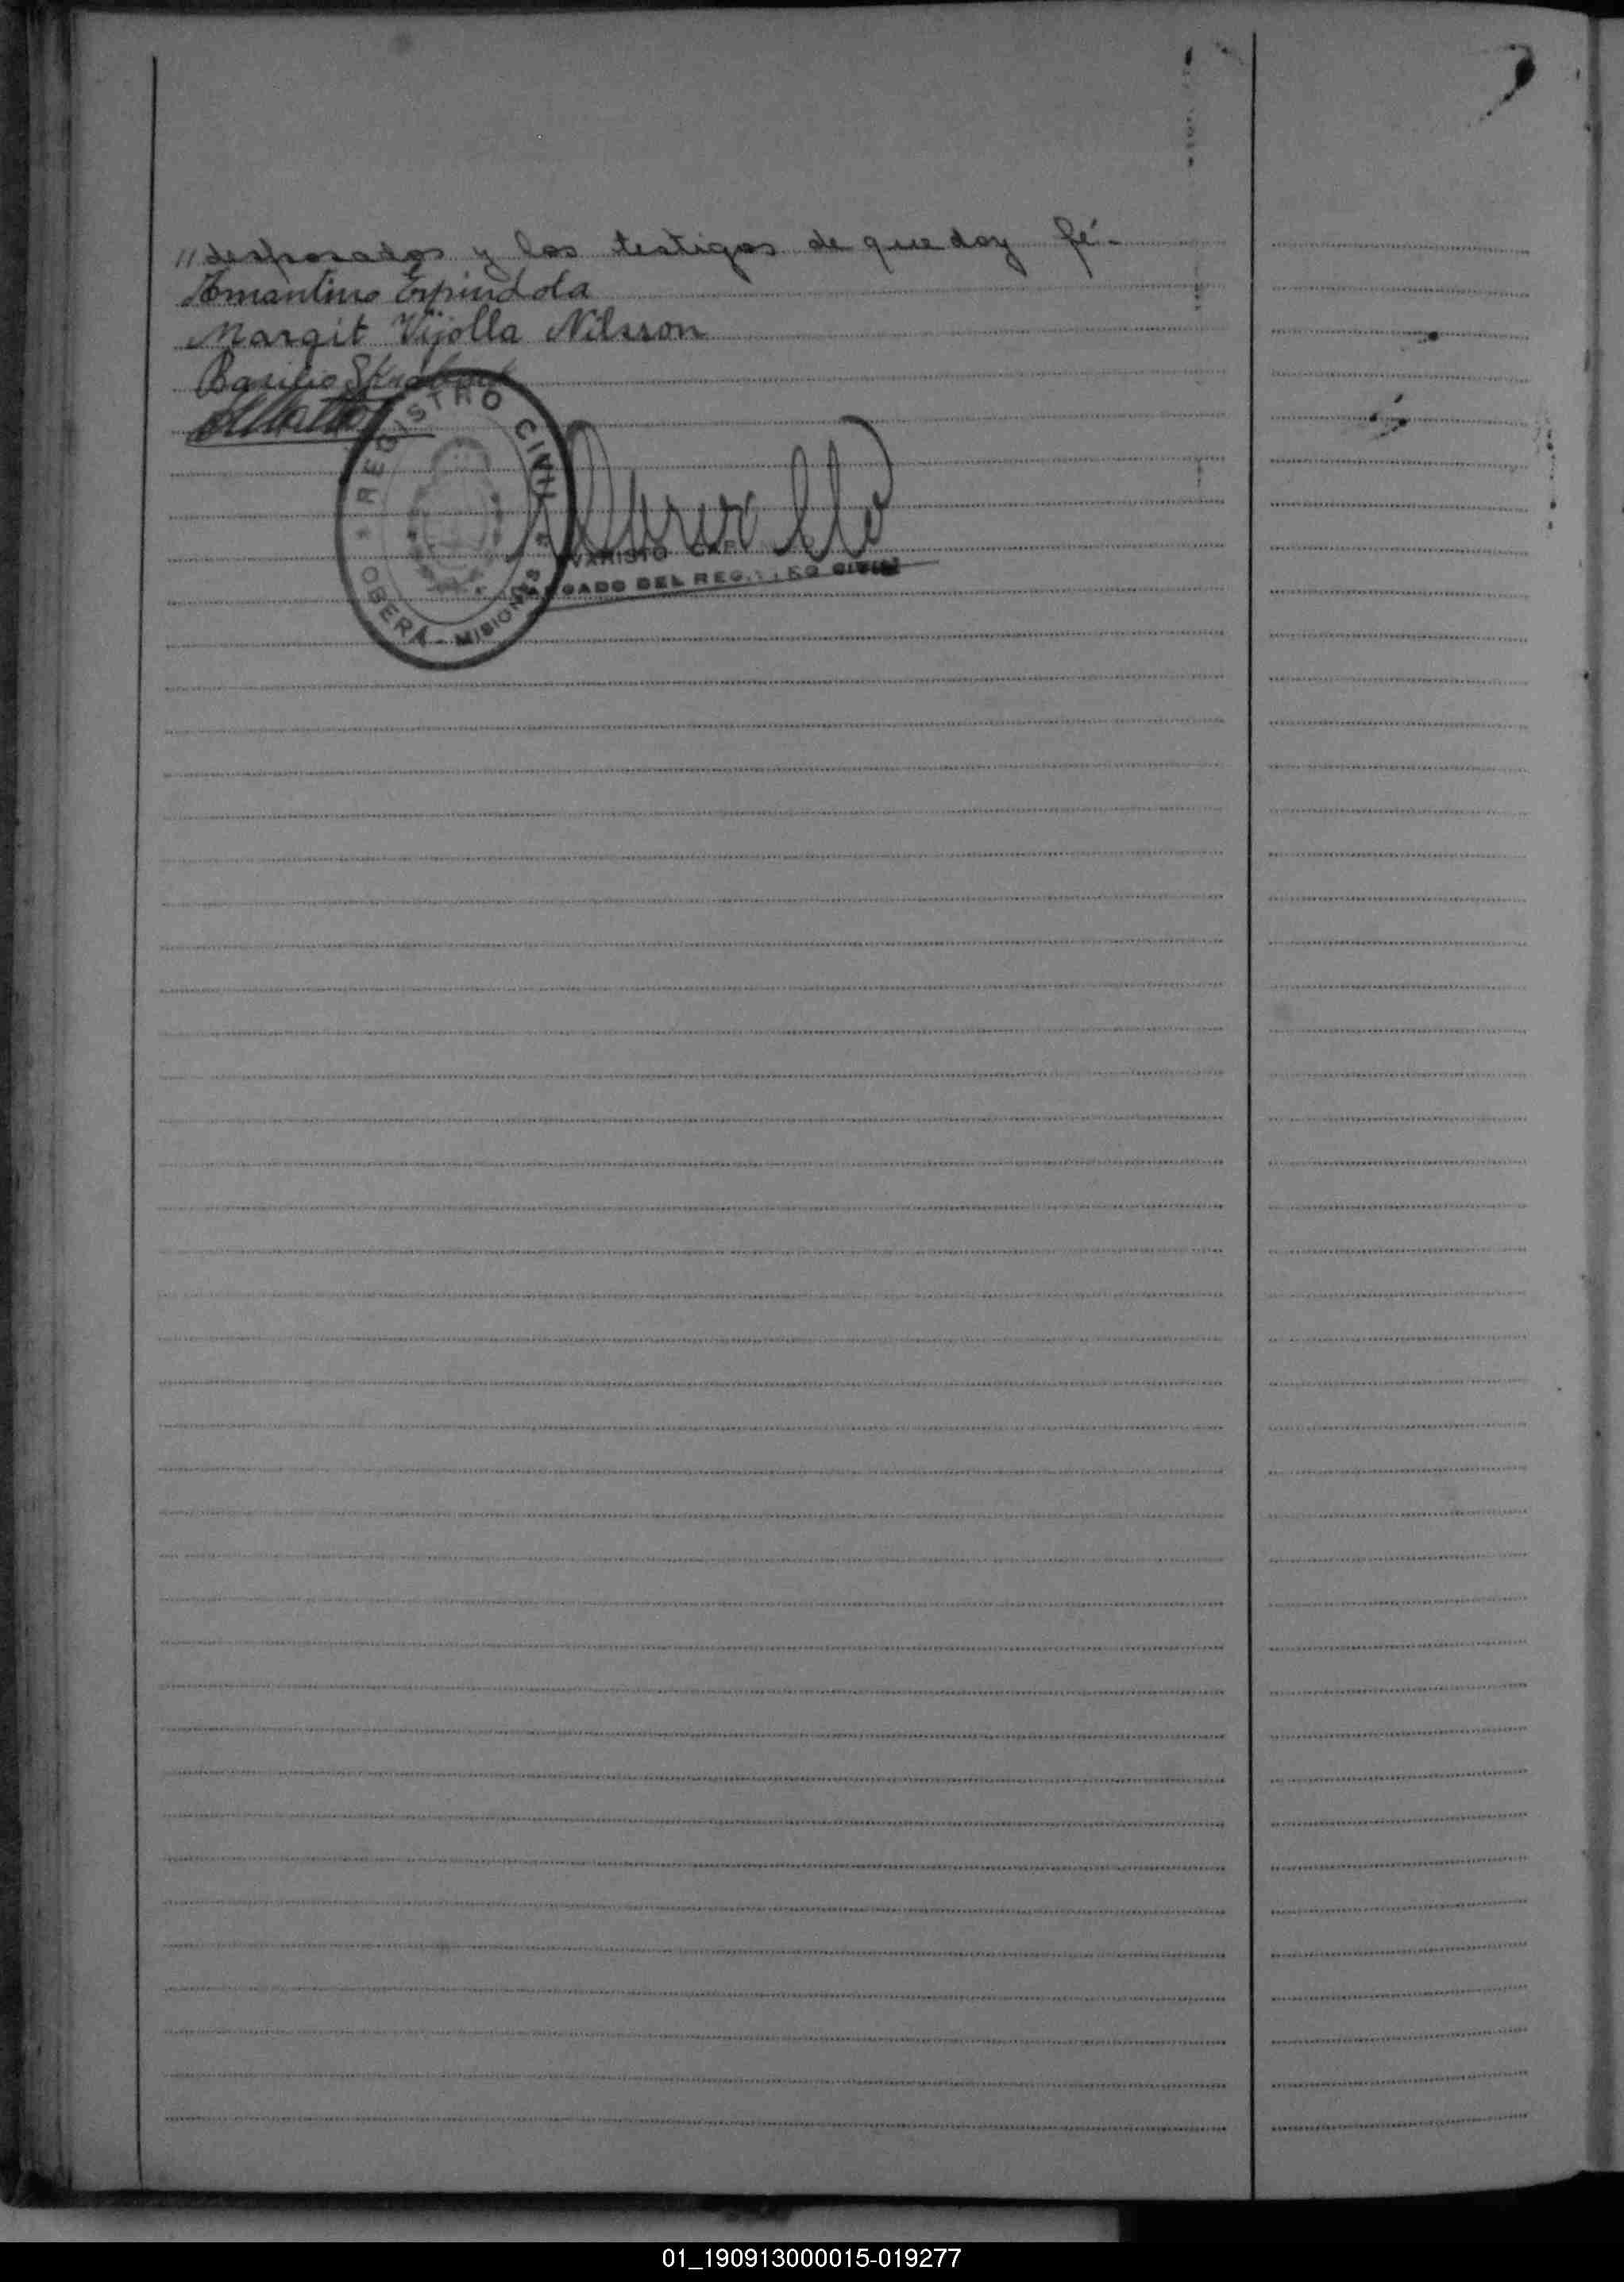 // desposados y los testigos de que doy fé.-
Amantino Espindola
Margit Vijolla Nilsson
Basilio
REGISTRO CIVIL
OBERA - MISIONES
VARISTO
GADO DEL REGISTRO CIVIL
01_190913000015-019277